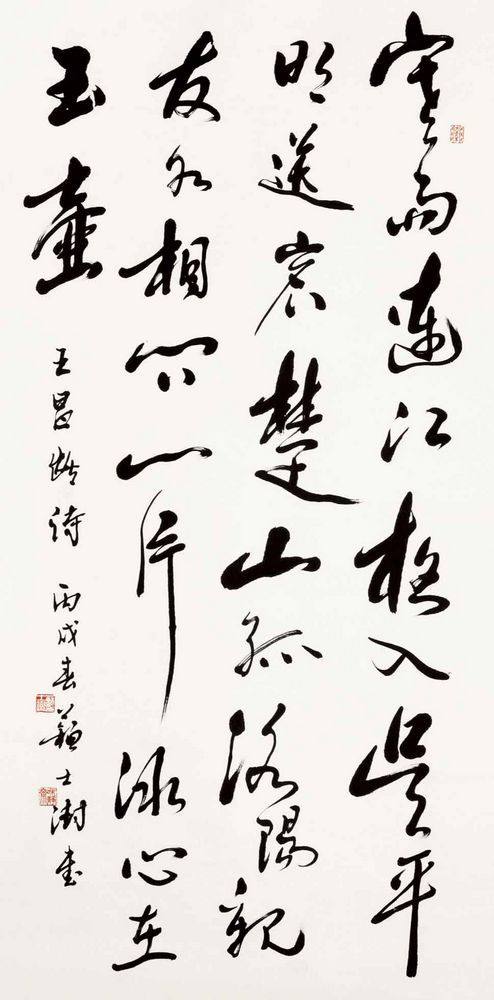 寒雨連江夜入吳平
明送客楚山孤洛陽親
友如相問一片冰心在
玉壺
王昌齡詩 丙戌春蘇士澍書